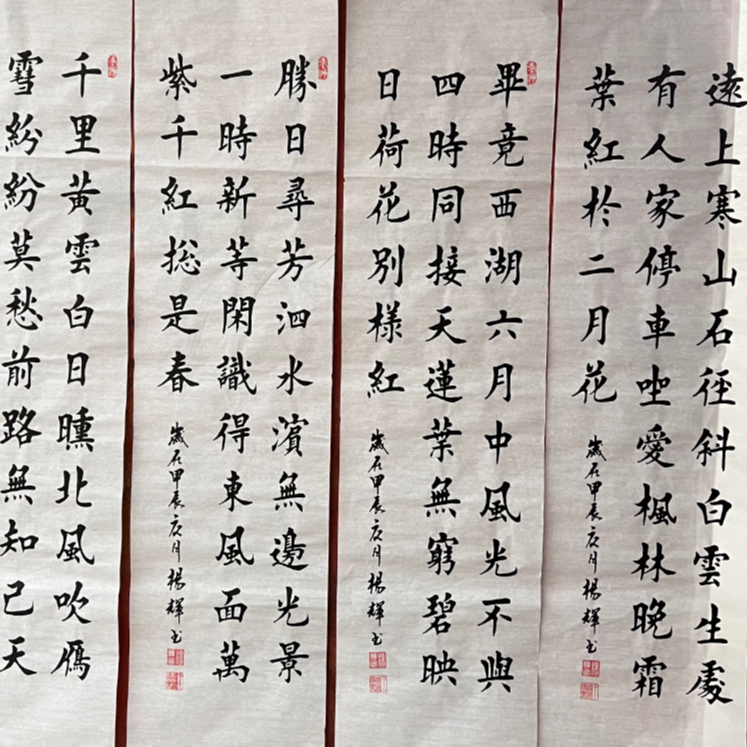 遠上寒山石径斜白雲生處
有人家停車坐愛楓林晚霜
葉紅於二月花
歲在甲辰月楊輝书
畢竟西湖六月中風光不與
四時同接天蓮葉無窮碧映
日荷花别樣紅
歲在甲辰月楊輝书
勝日尋芳泗水濱無邊光景
一時新等閑識得東風面萬
紫千紅総是春
歲在甲辰月楊輝书
千里黄雲白日曛北風吹鴈
雪紛紛莫愁前路無知己天